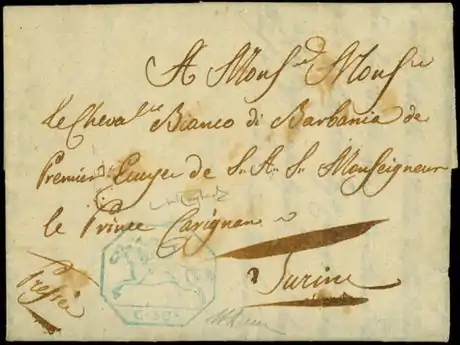 A Monsr. Monsr.
le Chevalier Bianco di Barbania de
Premier Ecuyer de S. A. S. Monseigneur
le Prince Carignan
à Turin
Pressée
C. 50